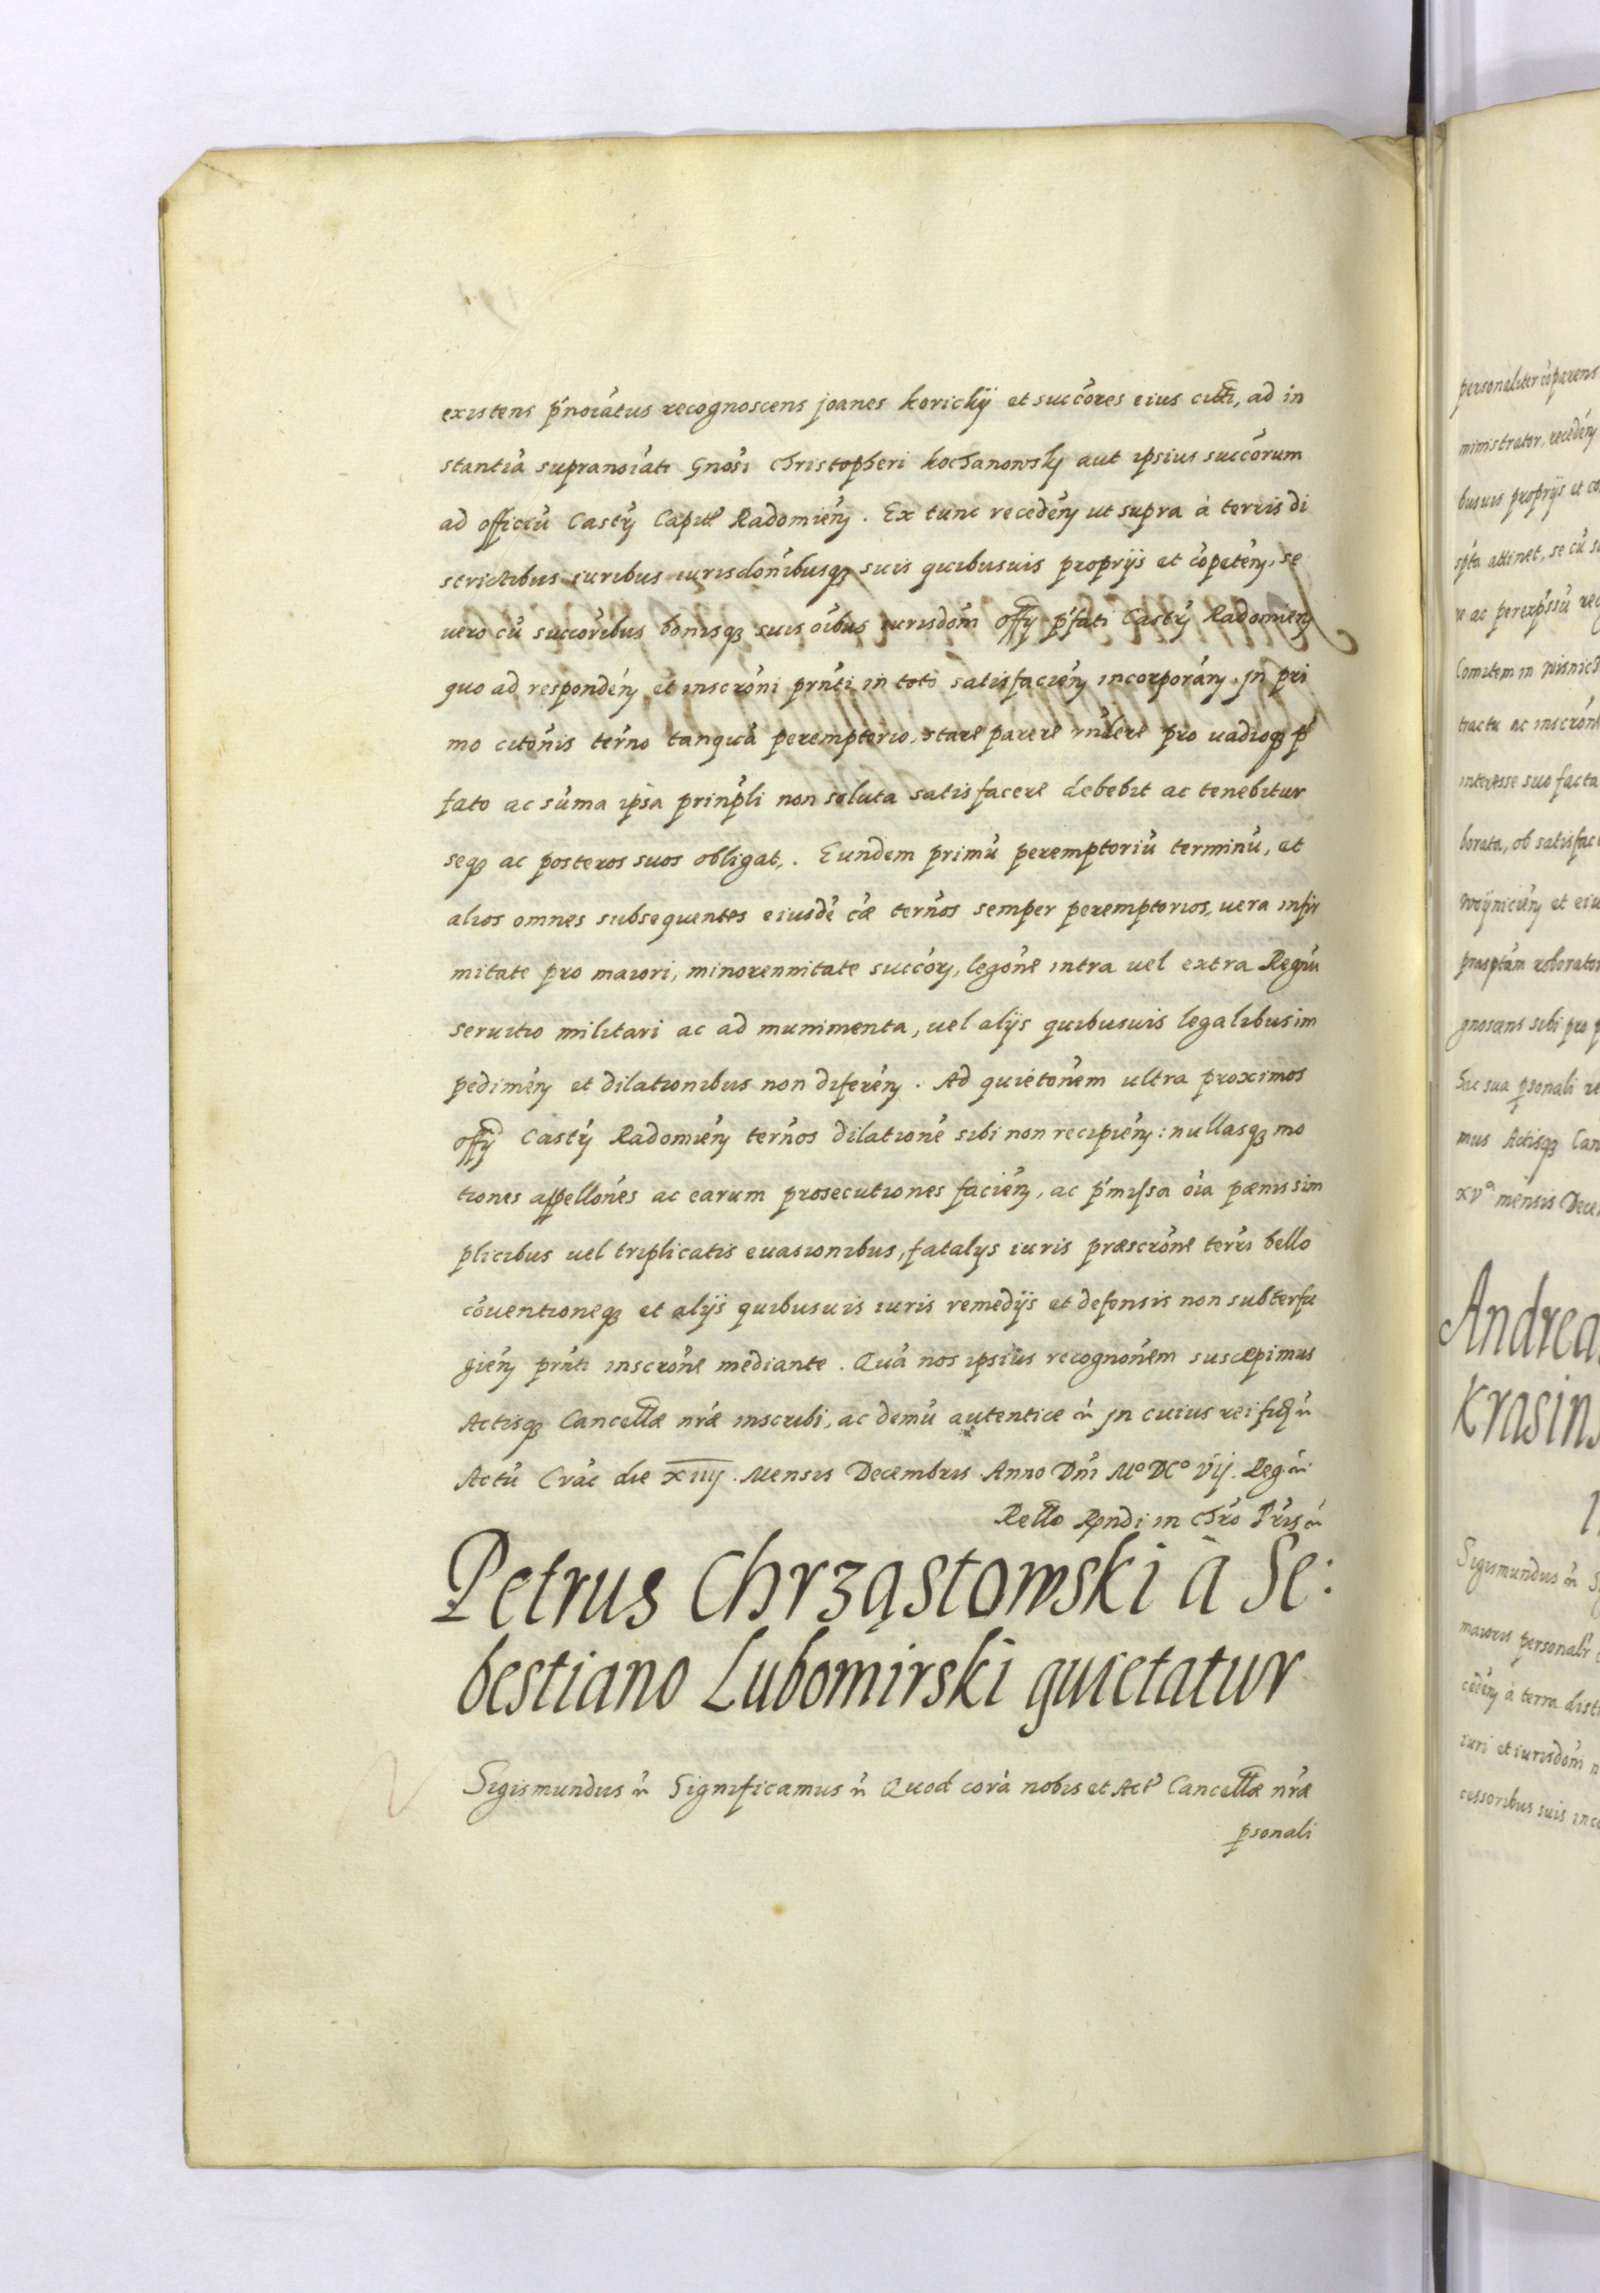 existens p̃noĩatus recognoscens joanes korickÿ et succ̃ores eius citti, ad in
stantiã supranoĩati Gnosi Christopheri kochanowsky aut ipsius succ̃orum
ad officiũ Castr̃ Capitl Radomień. Ex tunc recedeń ut supra à terris di
strictibus iuribus iurisdonibusq3 suis quibusuis proprijs et cõpeteń, se
uero cũ succoribus bonisq3 suis oĩbus iurisdom̃ offÿ p̃fati Castr̃ Radomień
quo ad respondeń et inscroñi prñti in toto satisfacień incorporań. Jn pri
mo citoñis term̃o tanquã peremptorio, stare parere rñdere pro uadioq3 p̃
fato ac sum̃a ipsa prinp̃li non soluta satisfacere debebit ac tenebitur
seq3 ac posteros suos obligat. Eundem primũ peremptoriũ terminũ, et
alios omnes subsequentes eiusdẽ cãe term̃os semper peremptorios, uera infir
mitate pro maiori, minorennitate succor̃, legoñe intra uel extra Regnũ
seruitio militari ac ad munimenta, uel alijs quibusuis legalibus im
pedimeń et dilationibus non difereń. Ad quietoñem ultra proximos
offÿ Castr̃ Radomień term̃os dilationẽ sibi non recipień: nullasq3 mo
tiones appelloñes ac earum prosecutiones facień, ac p̃missa oĩa pænis sim
plicibus uel triplicatis euasionibus, fatalÿs iuris præscroñe terrĩ bello
cõuentioneq3 et alijs quibusuis iuris remedijs et defensis non subterfu
gień prñti inscroñe mediante. Quã nos ipsius recognoñem suscepimus
Actisq3 Cancellæ nr̃æ inscribi, ac demũ autentice ẽ Jn cuius rei fid ẽ
Actũ Crac̃ die XIIIJ. Mensis Decembris Anno Dñi M° DC° VIJ. Reg ẽ
Rello Rñdi in Chr̃o Pr̃is ẽ
Petrus Chrząstowski à Se:
bestiano Lubomirski quietatur
Sigismundus ẽ Significamus ẽ Quod corã nobis et Act Cancellæ nr̃æ
psonali
personaliter cõparens
ministrator, recedeń
busuis proprijs et co
re ac per exp̃ssũ rec
Comitem in Wisnicz
tractu ac inscroñe
interesse suo facta
borata, ob satisfac
Woÿnicień et eiu
gnoscens sibi pro p
Sic sua psonali re
mus Actisq3 Can
XV° mensis Dece
Andrea
Krasins
Sigismundus ẽ S
cedeń à terra dist
iuri et iurisdoñi
cessoribus suis inc